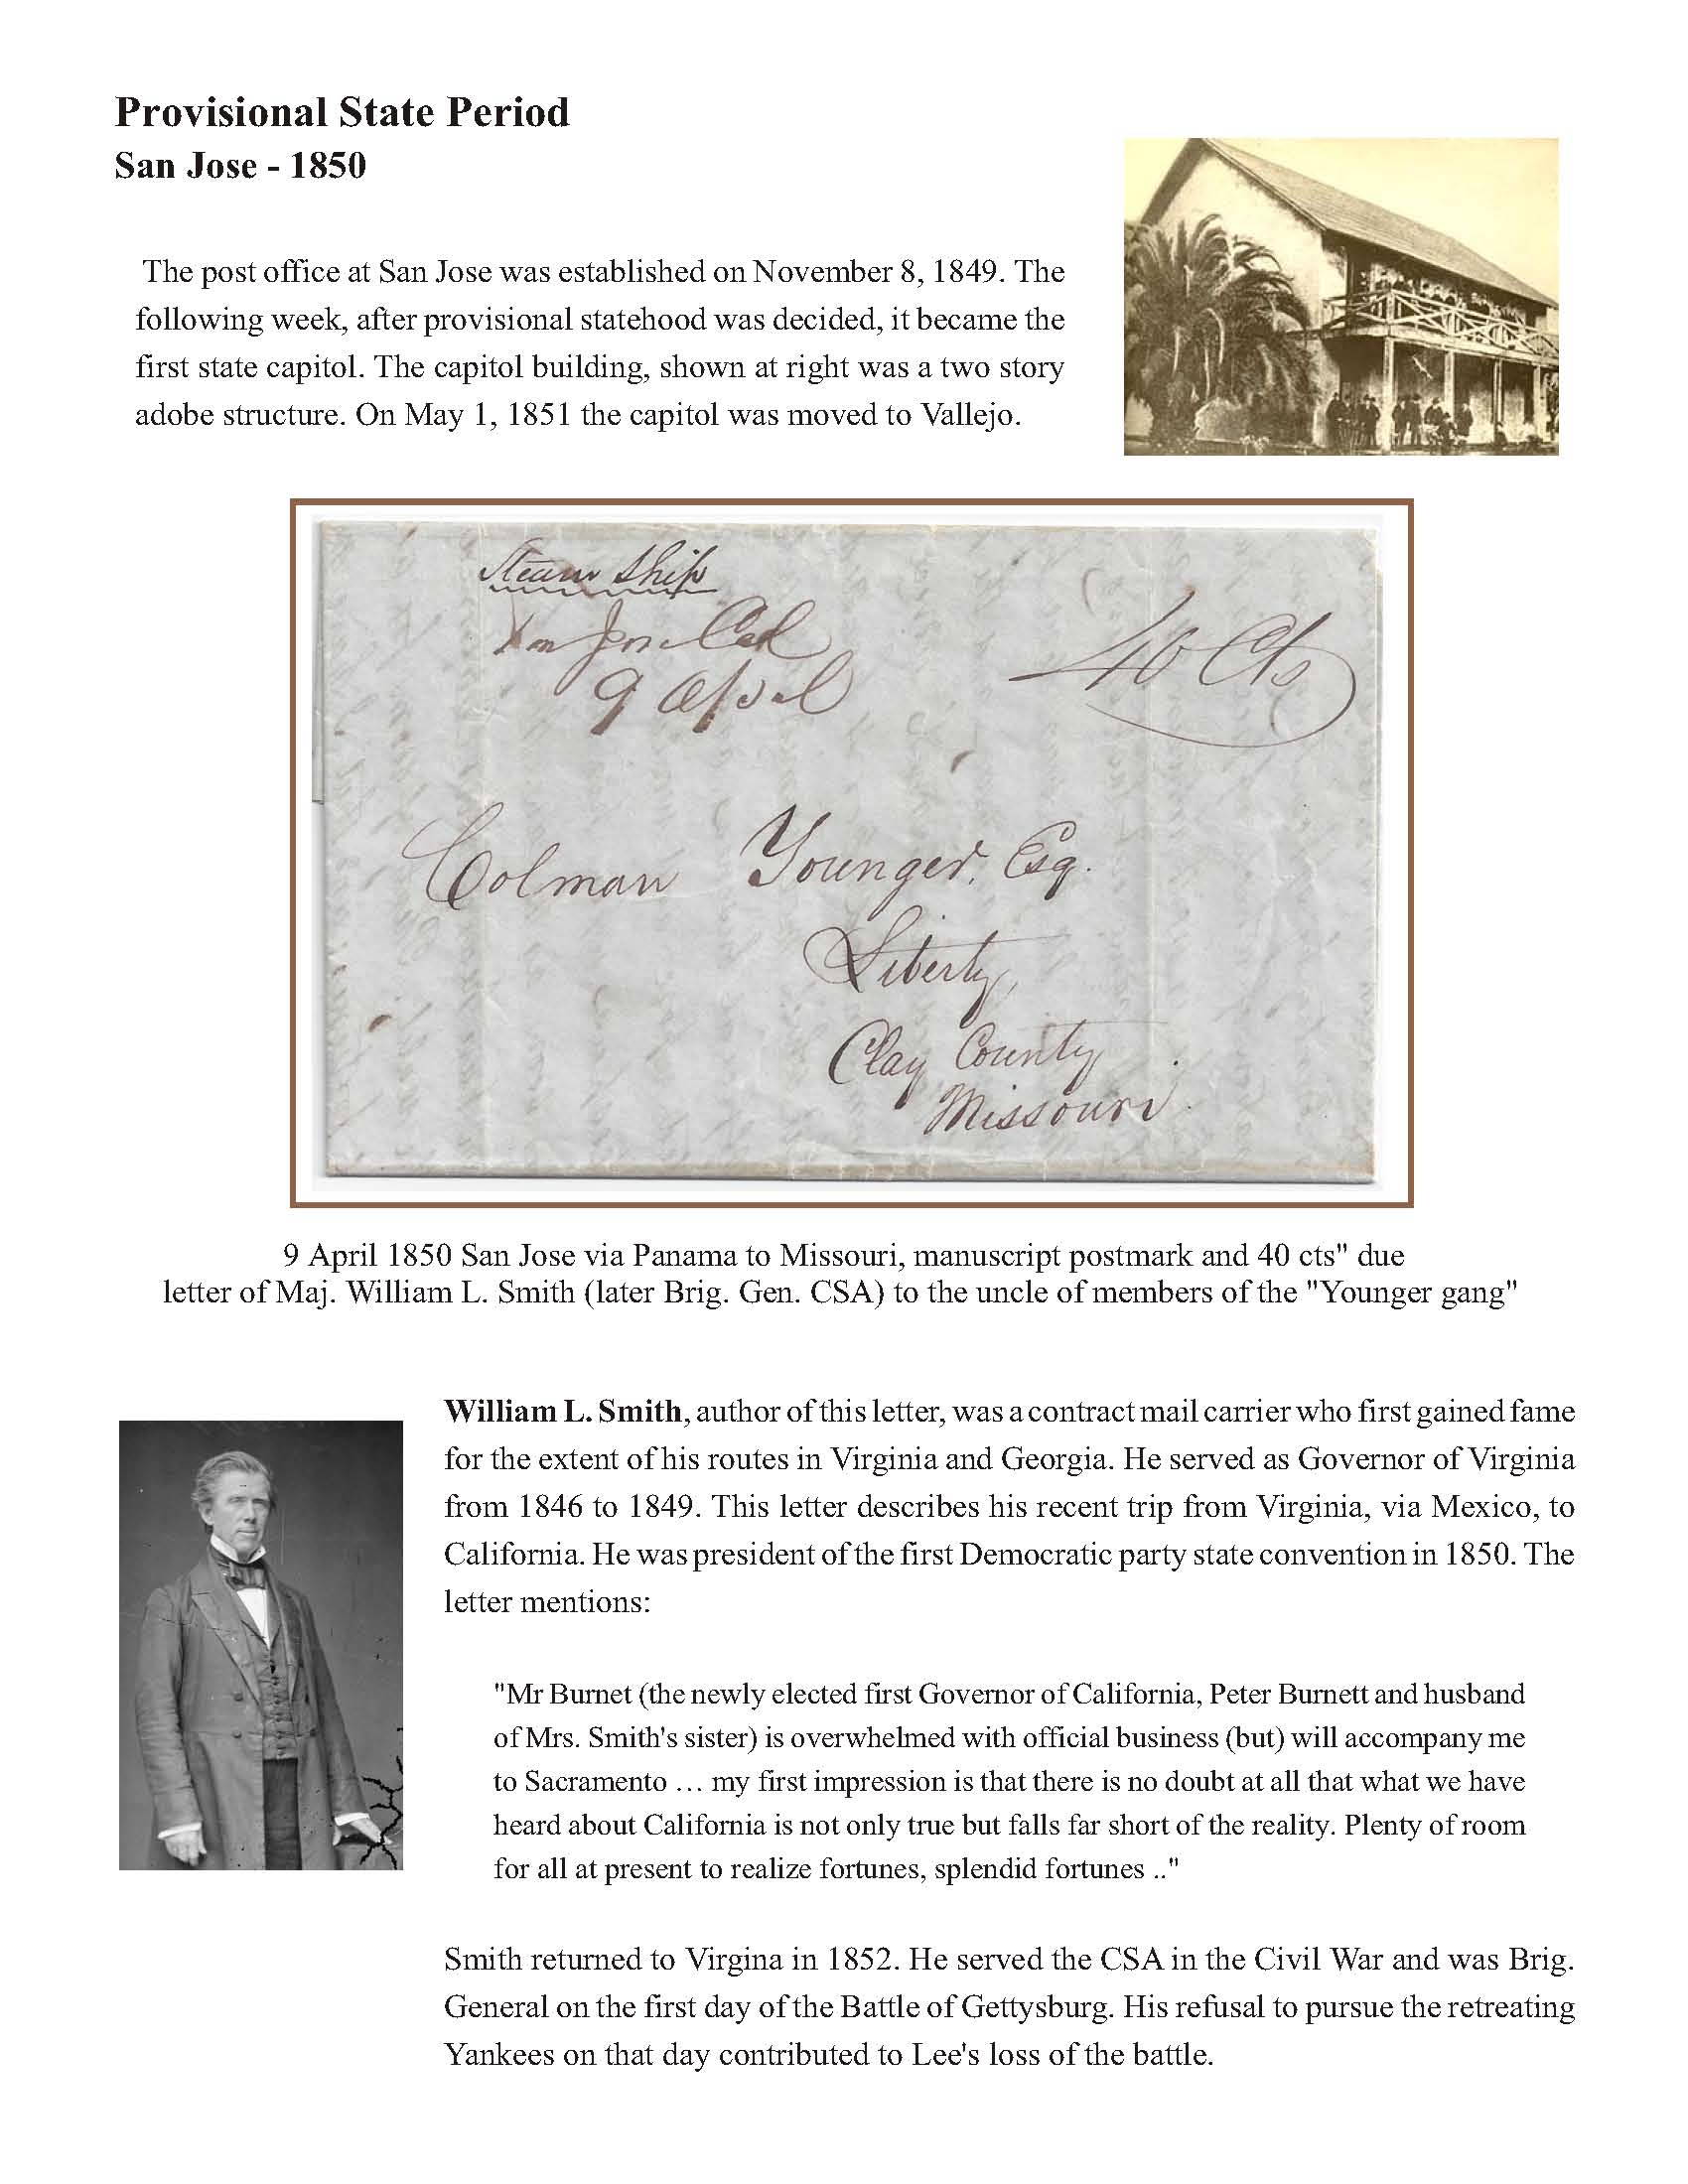 Provisional State Period
San Jose - 1850
The post office at San Jose was established on November 8, 1849. The
following week, after provisional statehood was decided, it became the
first state capitol. The capitol building, shown at right was a two story
adobe structure. On May 1, 1851 the capitol was moved to Vallejo.
Steam Ship
San Jose Cal
9 April
40 Cts
Colman Younger, Esq.
Liberty,
Clay County
Missouri.
9 April 1850 San Jose via Panama to Missouri, manuscript postmark and 40 cts" due
letter of Maj. William L. Smith (later Brig. Gen. CSA) to the uncle of members of the "Younger gang"
William L. Smith, author of this letter, was a contract mail carrier who first gained fame
for the extent of his routes in Virginia and Georgia. He served as Governor of Virginia
from 1846 to 1849. This letter describes his recent trip from Virginia, via Mexico, to
California. He was president of the first Democratic party state convention in 1850. The
letter mentions:
"Mr Burnet (the newly elected first Governor of California, Peter Burnett and husband
of Mrs. Smith's sister) is overwhelmed with official business (but) will accompany me
to Sacramento … my first impression is that there is no doubt at all that what we have
heard about California is not only true but falls far short of the reality. Plenty of room
for all at present to realize fortunes, splendid fortunes .."
Smith returned to Virgina in 1852. He served the CSA in the Civil War and was Brig.
General on the first day of the Battle of Gettysburg. His refusal to pursue the retreating
Yankees on that day contributed to Lee's loss of the battle.